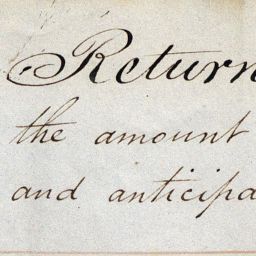 Return
the amount
and anticipa